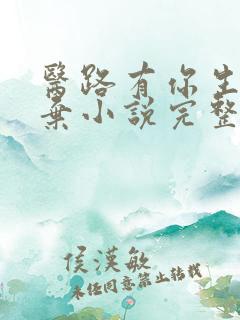 醫路有你生
棄小說完整
侯漢敏
未经同意禁止转载